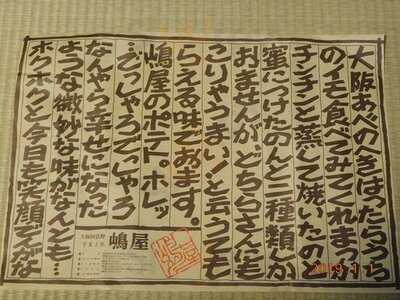 大阪あべのへきはったらうち
のイモ食べてみてくれまっか
チンチンと蒸して焼いたのと
蜜につけたのんと二種類しか
おませんが、どちらさんにも
こりゃうまい!と云うても
らえる味でおます。
嶋屋のポテト。ホレッ
…でっしゃろでっしゃろ
なんやら幸せになった
ような微妙な味がなんとも…
ホクホクと今日も笑顔でんがな
嶋屋